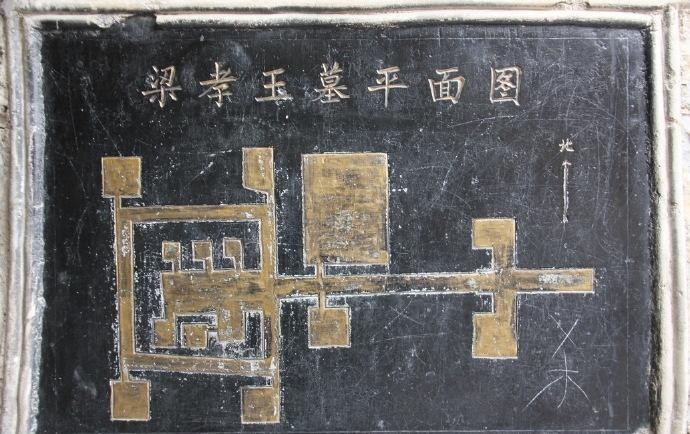 梁孝玉墓平面图
北